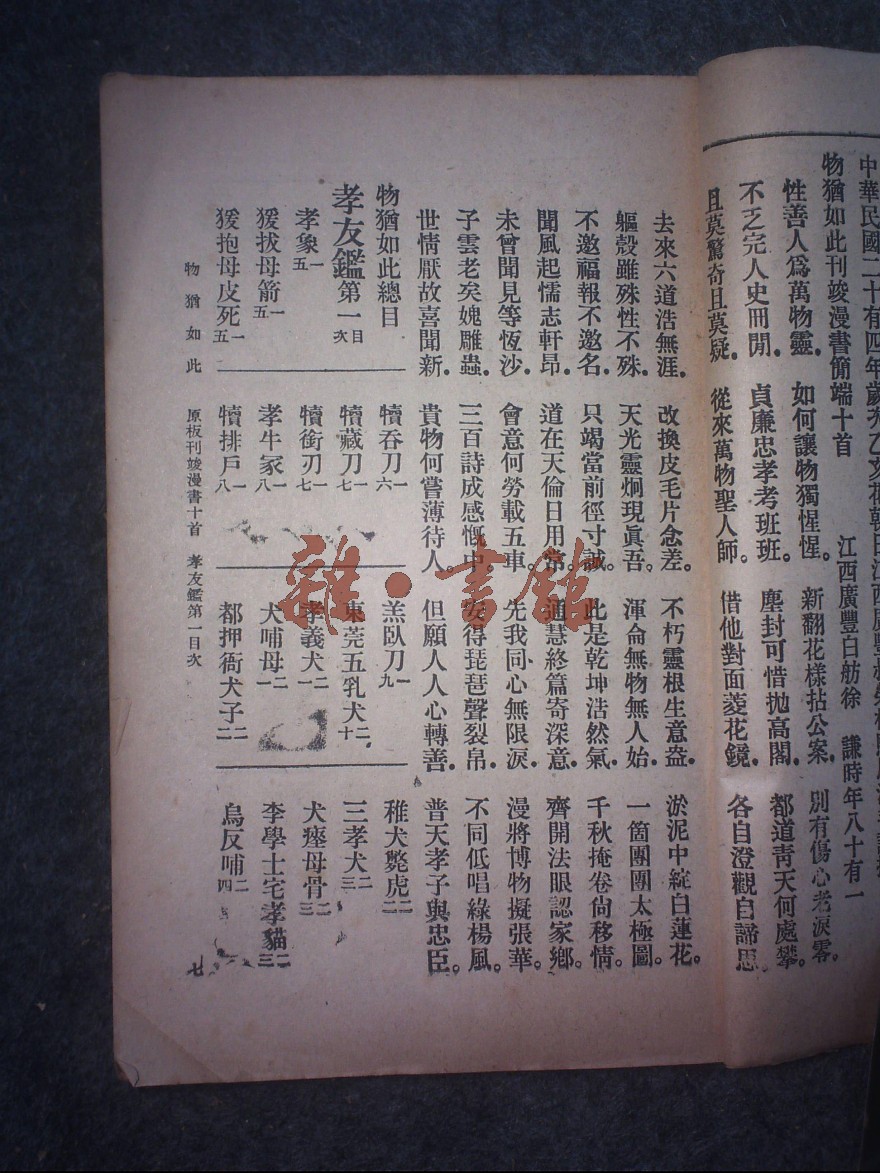 中華民國二十有四年歲次乙亥花朝日江西廣豐
物猶如此刊竣漫書簡端十首　江西廣豐白舫徐　謙時年八十有一
性善人爲萬物靈。如何讓物獨惺惺。新翻花樣拈公案。別有傷心老淚零。
不乏完人史冊開。貞廉忠孝考班班。塵封可惜拋高閣。都道靑天何處攀。
且莫驚奇且莫疑。從來萬物聖人師。借他對面菱花鏡。各自澄觀自諦思。
去來六道浩無涯。改換皮毛片念差。不朽靈根生意盎。淤泥中綻白蓮花。
軀殼雖殊性不殊。天光靈炯現眞吾。渾侖無物無人始。一箇團團太極圖。
不邀福報不邀名。只竭當前徑寸誠。此是乾坤浩然氣。千秋掩卷尙移情。
聞風起懦志軒昻。道在天倫日用常。通慧終篇寄深意。齊開法眼認家鄕。
未曾聞見等恆沙。會意何勞載五車。先我同心無限淚。漫將博物擬張華。
子雲老矣媿雕蟲。三百詩成感慨中。安得琵琶聲裂帛。不同低唱綠楊風。
世情厭故喜聞新。貴物何嘗薄待人。但願人人心轉善。普天孝子與忠臣。
物猶如此總目
孝友鑑第一目次
孝象一五
猨拔母箭一五
猨抱母皮死一五
犢吞刀一六
犢藏刀一七
犢銜刃一七
孝牛冢一八
犢排戶一八
羔臥刀一九
東莞五乳犬二十
孝義犬二一
犬哺母二一
都押衙犬子二二
稚犬斃虎二二
三孝犬二三
犬瘞母骨二三
李學士宅孝貓二三
烏反哺二四
物猶如此　原板刊竣漫書十首　孝友鑑第一目次
七
雜·書館